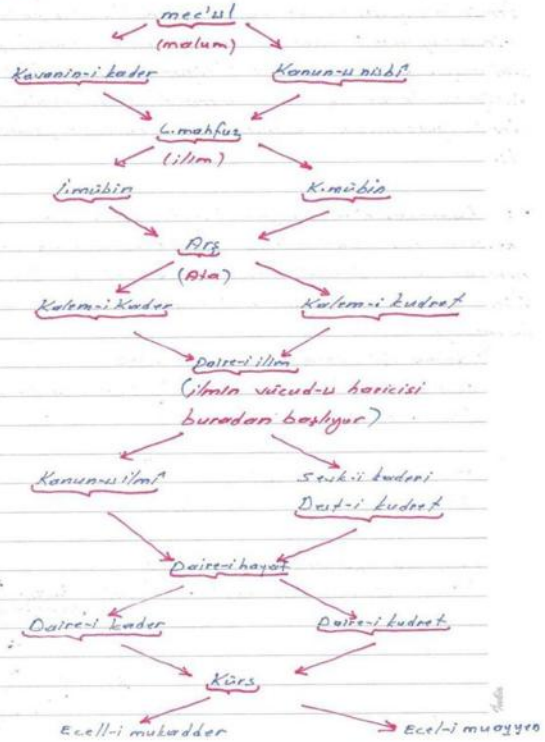 mec'ul
(malum)
Kavanin-i kader Kanun-u nisbî
L.mahfuz
(ilim)
İ.mübin K.mübin
Arş
(Ata)
Kalem-i Kader Kalem-i kudret
Daire-i ilim
(ilmin vücud-u haricisi
buradan başlıyor)
Kanun-u ilmî Sevk-i kaderi
Dest-i kudret
Daire-i hayat
Daire-i kader Daire-i kudret
Kürs
Ecell-i mukadder Ecel-i muayyen